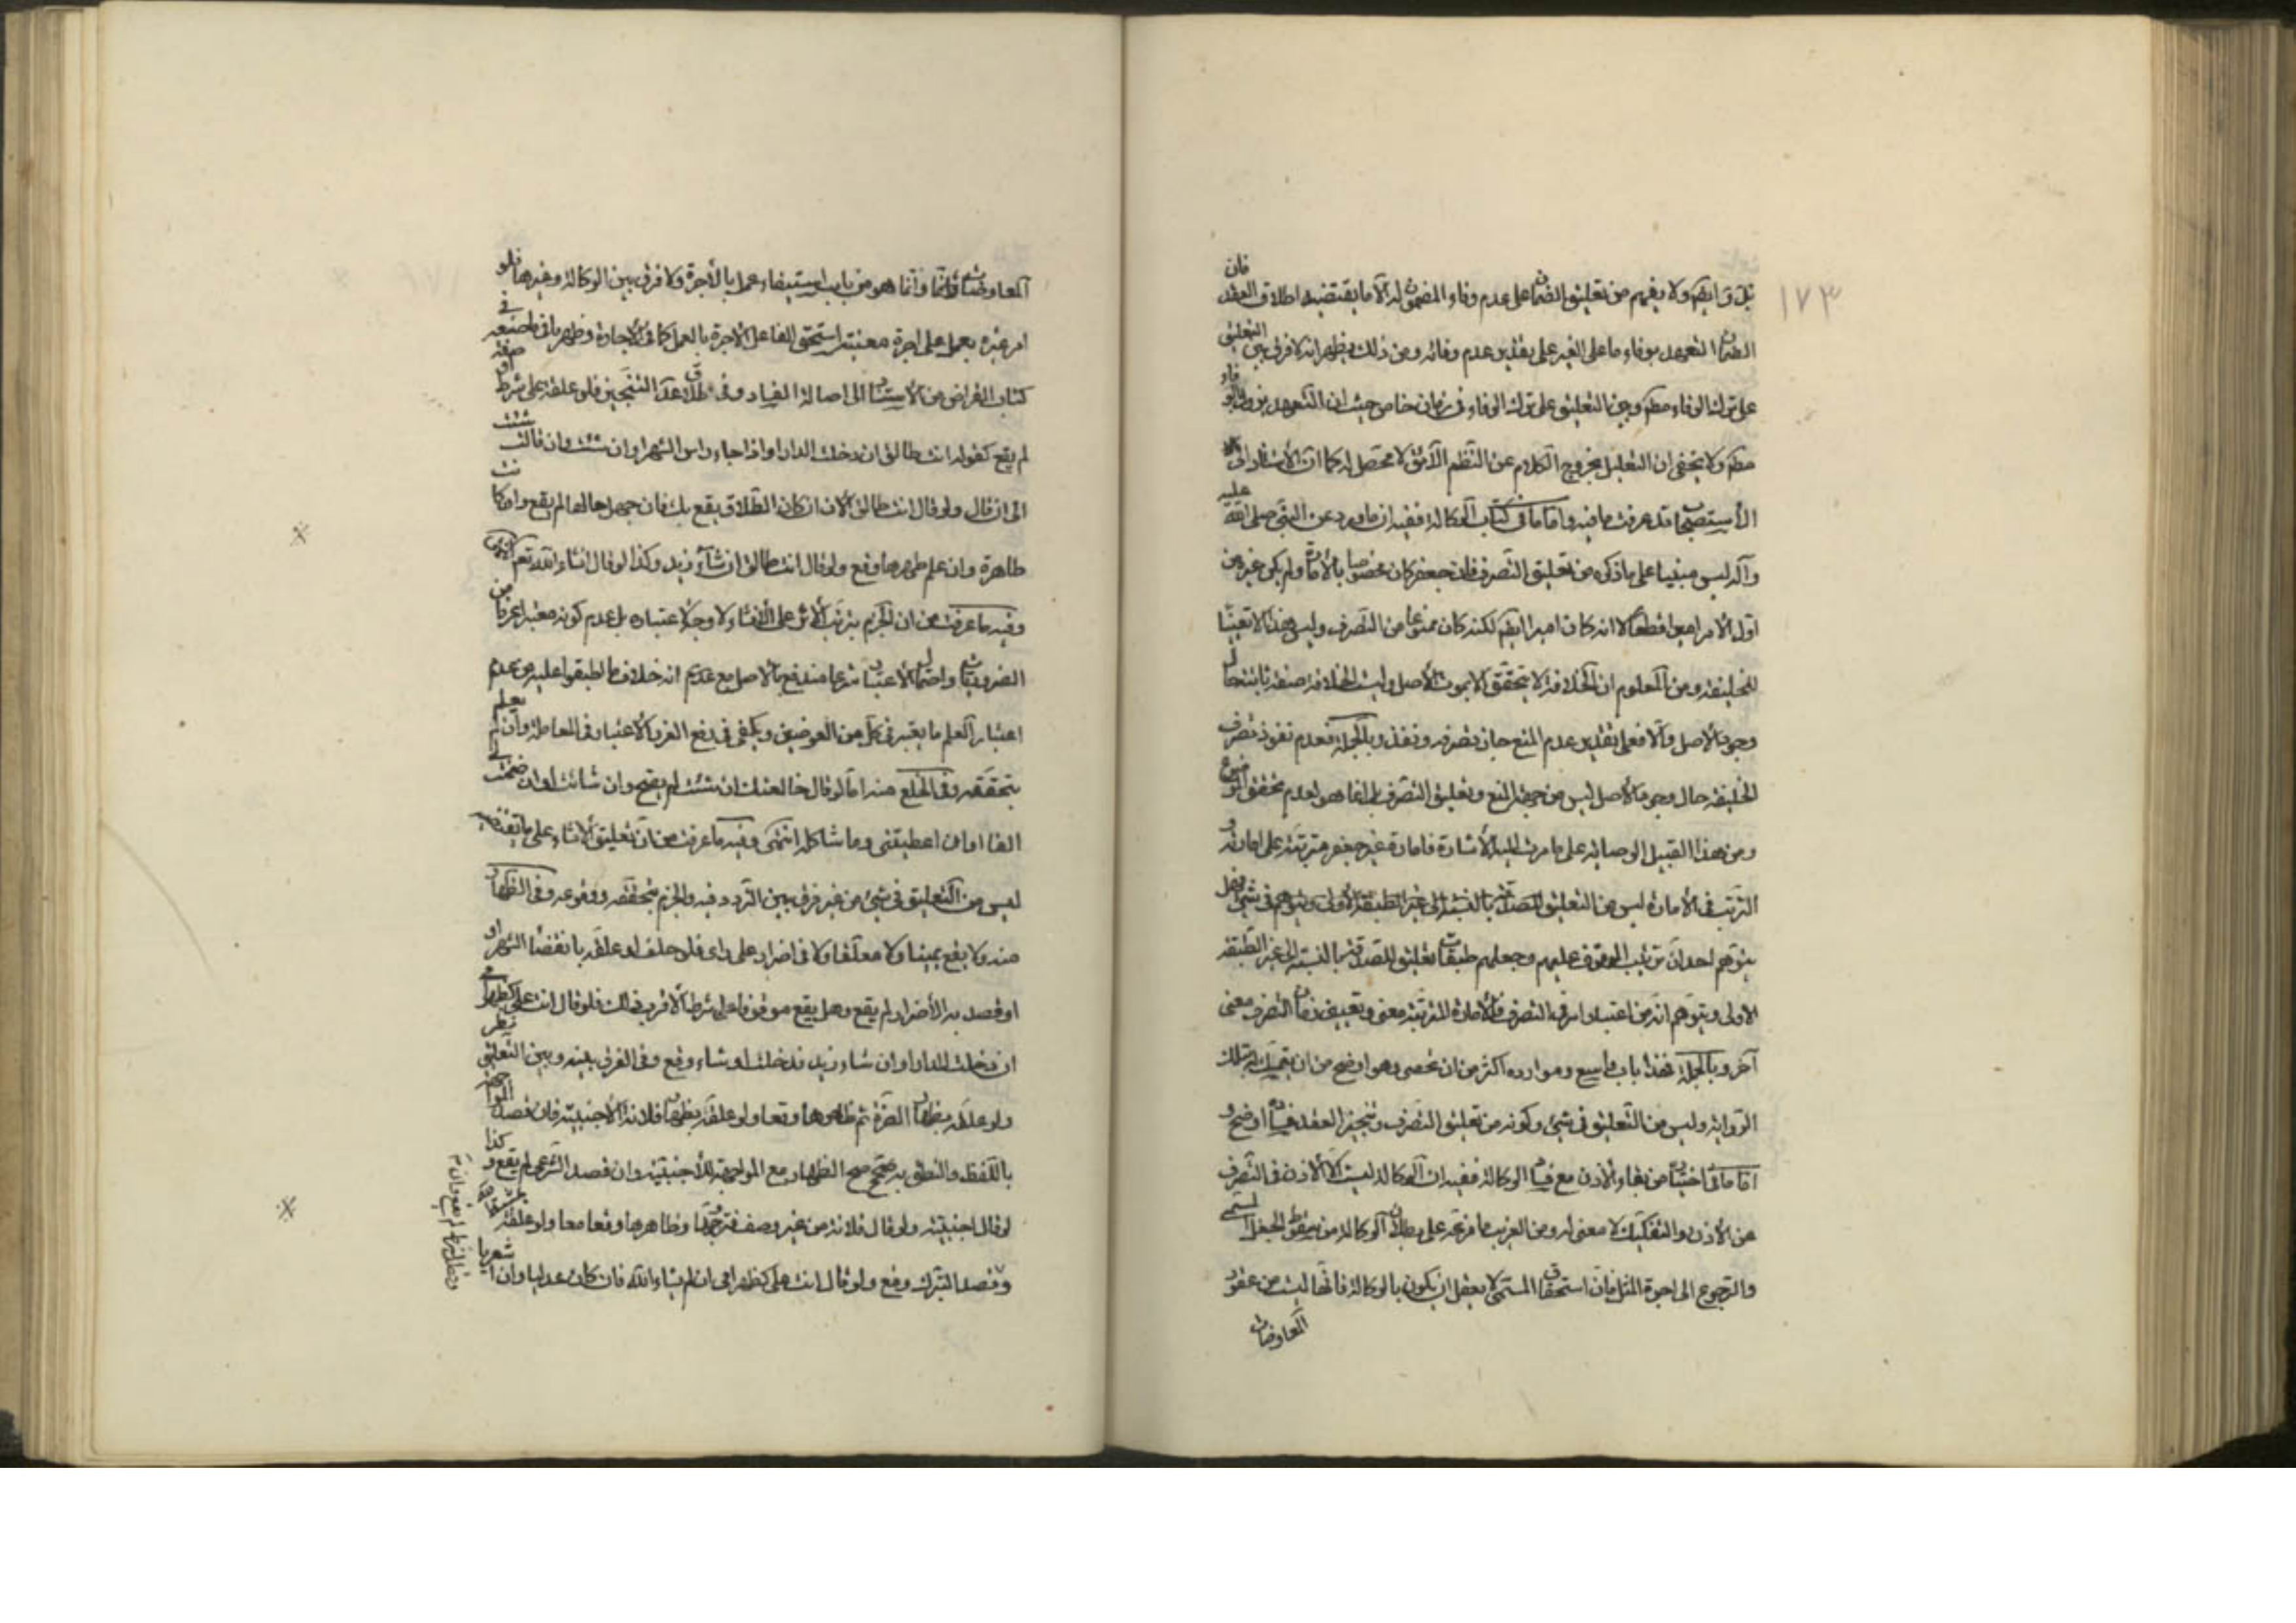 ١٧٣
ولا يفهم من تعليق الضمان على عدم وفاء المضمون له الا ما يقتضيه اطلاق العقد فان
الضمان التعهد بوفاء ما على الغير على تقدير عدم وفائه ومن ذلك يظهر انه لا فرق بين التعليق
على ترك الوفاء مطم وبين التعليق على ترك الوفاء في زمان خاص حيث ان التعهد
مطم ولا يخفى ان التعليل بخروج الكلام عن النظم اللائق لا محصل له كما ان الاستناد الى
الاستصحاب قد عرفت ما فيه واما ما في كتاب الوكالة ففيه ان ما ورد عن النبي صلى الله عليه
وآله ليس مبنيا على ما ذكره من تعليق التصرف فان جعفر كان مخصوصا بالامارة ولم يكن غيره من
اول الامر اميرا قطعا لا انه كان اميرا ايضا لكنه كان ممنوعا من التصرف وليس هذا الا تعيينا
للخليفة ومن المعلوم ان الخلافة لا يتحقق الا بموت الاصل وليست الخلافة صفة ثابتة حال
وجود الاصل والا فعلى تقدير عدم المنع جاز تصرفه ونفذ وبالجملة فعدم نفوذ تصرف
الخليفة حال وجود الاصل ليس من جهة المنع وتعليق التصرف بل انما هو لعدم تحقق الموضوع
ومن هذا القبيل الوصاية على ما مرت اليه الاشارة فامارة غير جعفر مترتبة على امارته و
الترتب في الامارة ليس من التعليق في شيء فهل
يتوهم احد ان ترتيب الموقوف عليهم وجعلهم طبقات تعليق للصدقة بالنسبة الى غير الطبقة
الاولى ويتوهم انه من اعتبار امر في التصرف فالامارة المترتبة معنى وتعيين زمان التصرف معنى
آخر وبالجملة فهذا باب واسع وموارده اكثر من ان تحصى وهو اوضح من ان يتمسك له بتلك
الرواية وليس من التعليق في شيء وكونه من تعليق التصرف وتنجيز العقد فساده اوضح و
اما ما اختاره من بقاء الاذن مع فساد الوكالة ففيه ان الوكالة ليست الا الاذن في التصرف
من الاذن والتفكيك لا معنى له ومن الغريب ما فرعه على بطلان الوكالة من سقوط الجعل المسمى
والرجوع الى اجرة المثل فان استحقاق المسمى لا يعقل ان يكون بالوكالة فانها ليست من عقود
المعاوضات
المعاوضات وانما هو من باب استيفاء عمل بالاجرة ولا فرق بين الوكالة وغيرها فلو
امر غيره بعمل على اجرة معينة استحق الفاعل الاجرة بالعمل كما في الاجارة وظهر ما في ما صنعه في
كتاب القراض من الاستناد الى اصالة الفساد وفي طلاق عد التنجيز فلو علقه على شرط او صفة
لم يقع كقوله انت طالق ان دخلت الدار او اذا جاء راس الشهر او ان شئت وان قالت شئت
الى ان قال ولو قال انت طالق الان ان كان الطلاق يقع بك فان جهل حالها لم يقع وان كانت
طاهرة وان علم طهرها وقع ولو قال انت طالق ان شاء زيد وكذا لو قال ان شاء الله تعم انتهى
وفيه ما عرفت من ان الجزم بترتب الاثر على الانشاء لا وجه لاعتباره بل عدم كونه معتبرا عرفا من
الضروريات واحتمال الاعتبار شرعا مندفع بالاصل مع انه خلاف ما اطبقوا عليه من عدم
اعتبار العلم بما يعتبر في كل من العوضين ويكفى في رفع الغرر الاعتبار في المعاملة وان لم يعلم
بتحققه وفي الخلع منه اما لو قال خالعتك ان شئت لم يصح وان شائت او ان ضمنت لي
الفا او ان اعطيتني وما شاكله انتهى وفيه ما عرفت من ان تعليق الانشاء على ما يقتضيه
ليس من التعليق في شيء من غير فرق بين التردد فيه والجزم بتحققه ووقوعه وفي الظهار
منه ولا يقع يمينا ولا معلقا ولا في اضرار على راى فلو حلف او علقه بانقضاء الشهر او
او قصد به الاضرار لم يقع وهل يقع موقوفا على شرط الاقرب ذلك فلو قال انت على كظهر امي
ان دخلت الدار او ان شاء زيد فدخلت او شاء وقع وفي الفرق بينه وبين التعليق نظر
ولو علقه بظهار الضرة ثم ظاهرها وقعا ولو علقه بظهار فلانة الاجنبية فان قصد المواجهة
باللفظ والنطق به صح الظهار مع المواجهة للاجنبية وان قصد الشرعى لم يقع وكذا
لو قال اجنبية ولو قال فلانة من غير وصف فتزوجها وظاهرها وقعا معا ولو علقه بمشية الله
وقصد التبرك وقع ولو قال انت على كظهر امي ان لم يشاء الله فان كان عدليا وقع وان اشعريا